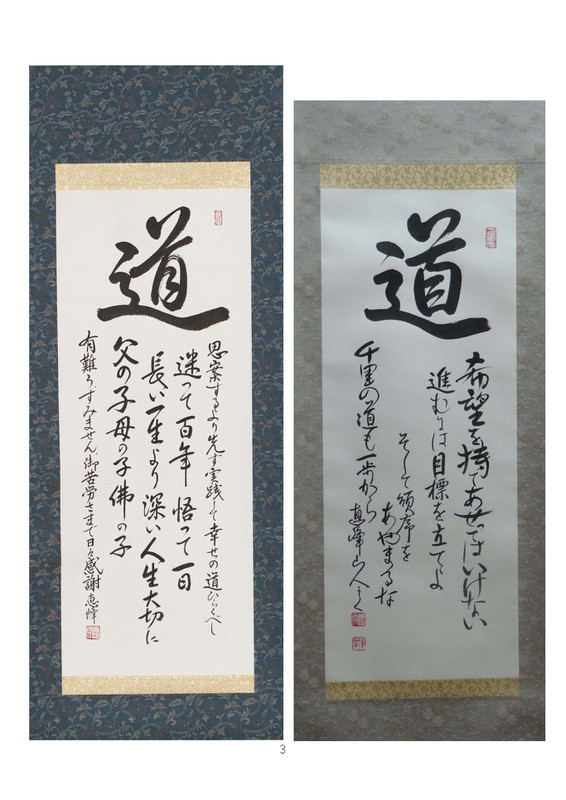 道
思案するより先ず実践して幸せの道ひらくべし
迷って百年 悟って一日
長い一生より深い人生大切に
父の子母の子佛の子
有難うすみません御苦労さまで日々感謝 恵峰
道
希望を持てあせってはいけない
進むには目標を立てよ
そして順序を
あやまるな
千里の道も一歩から
山人
3